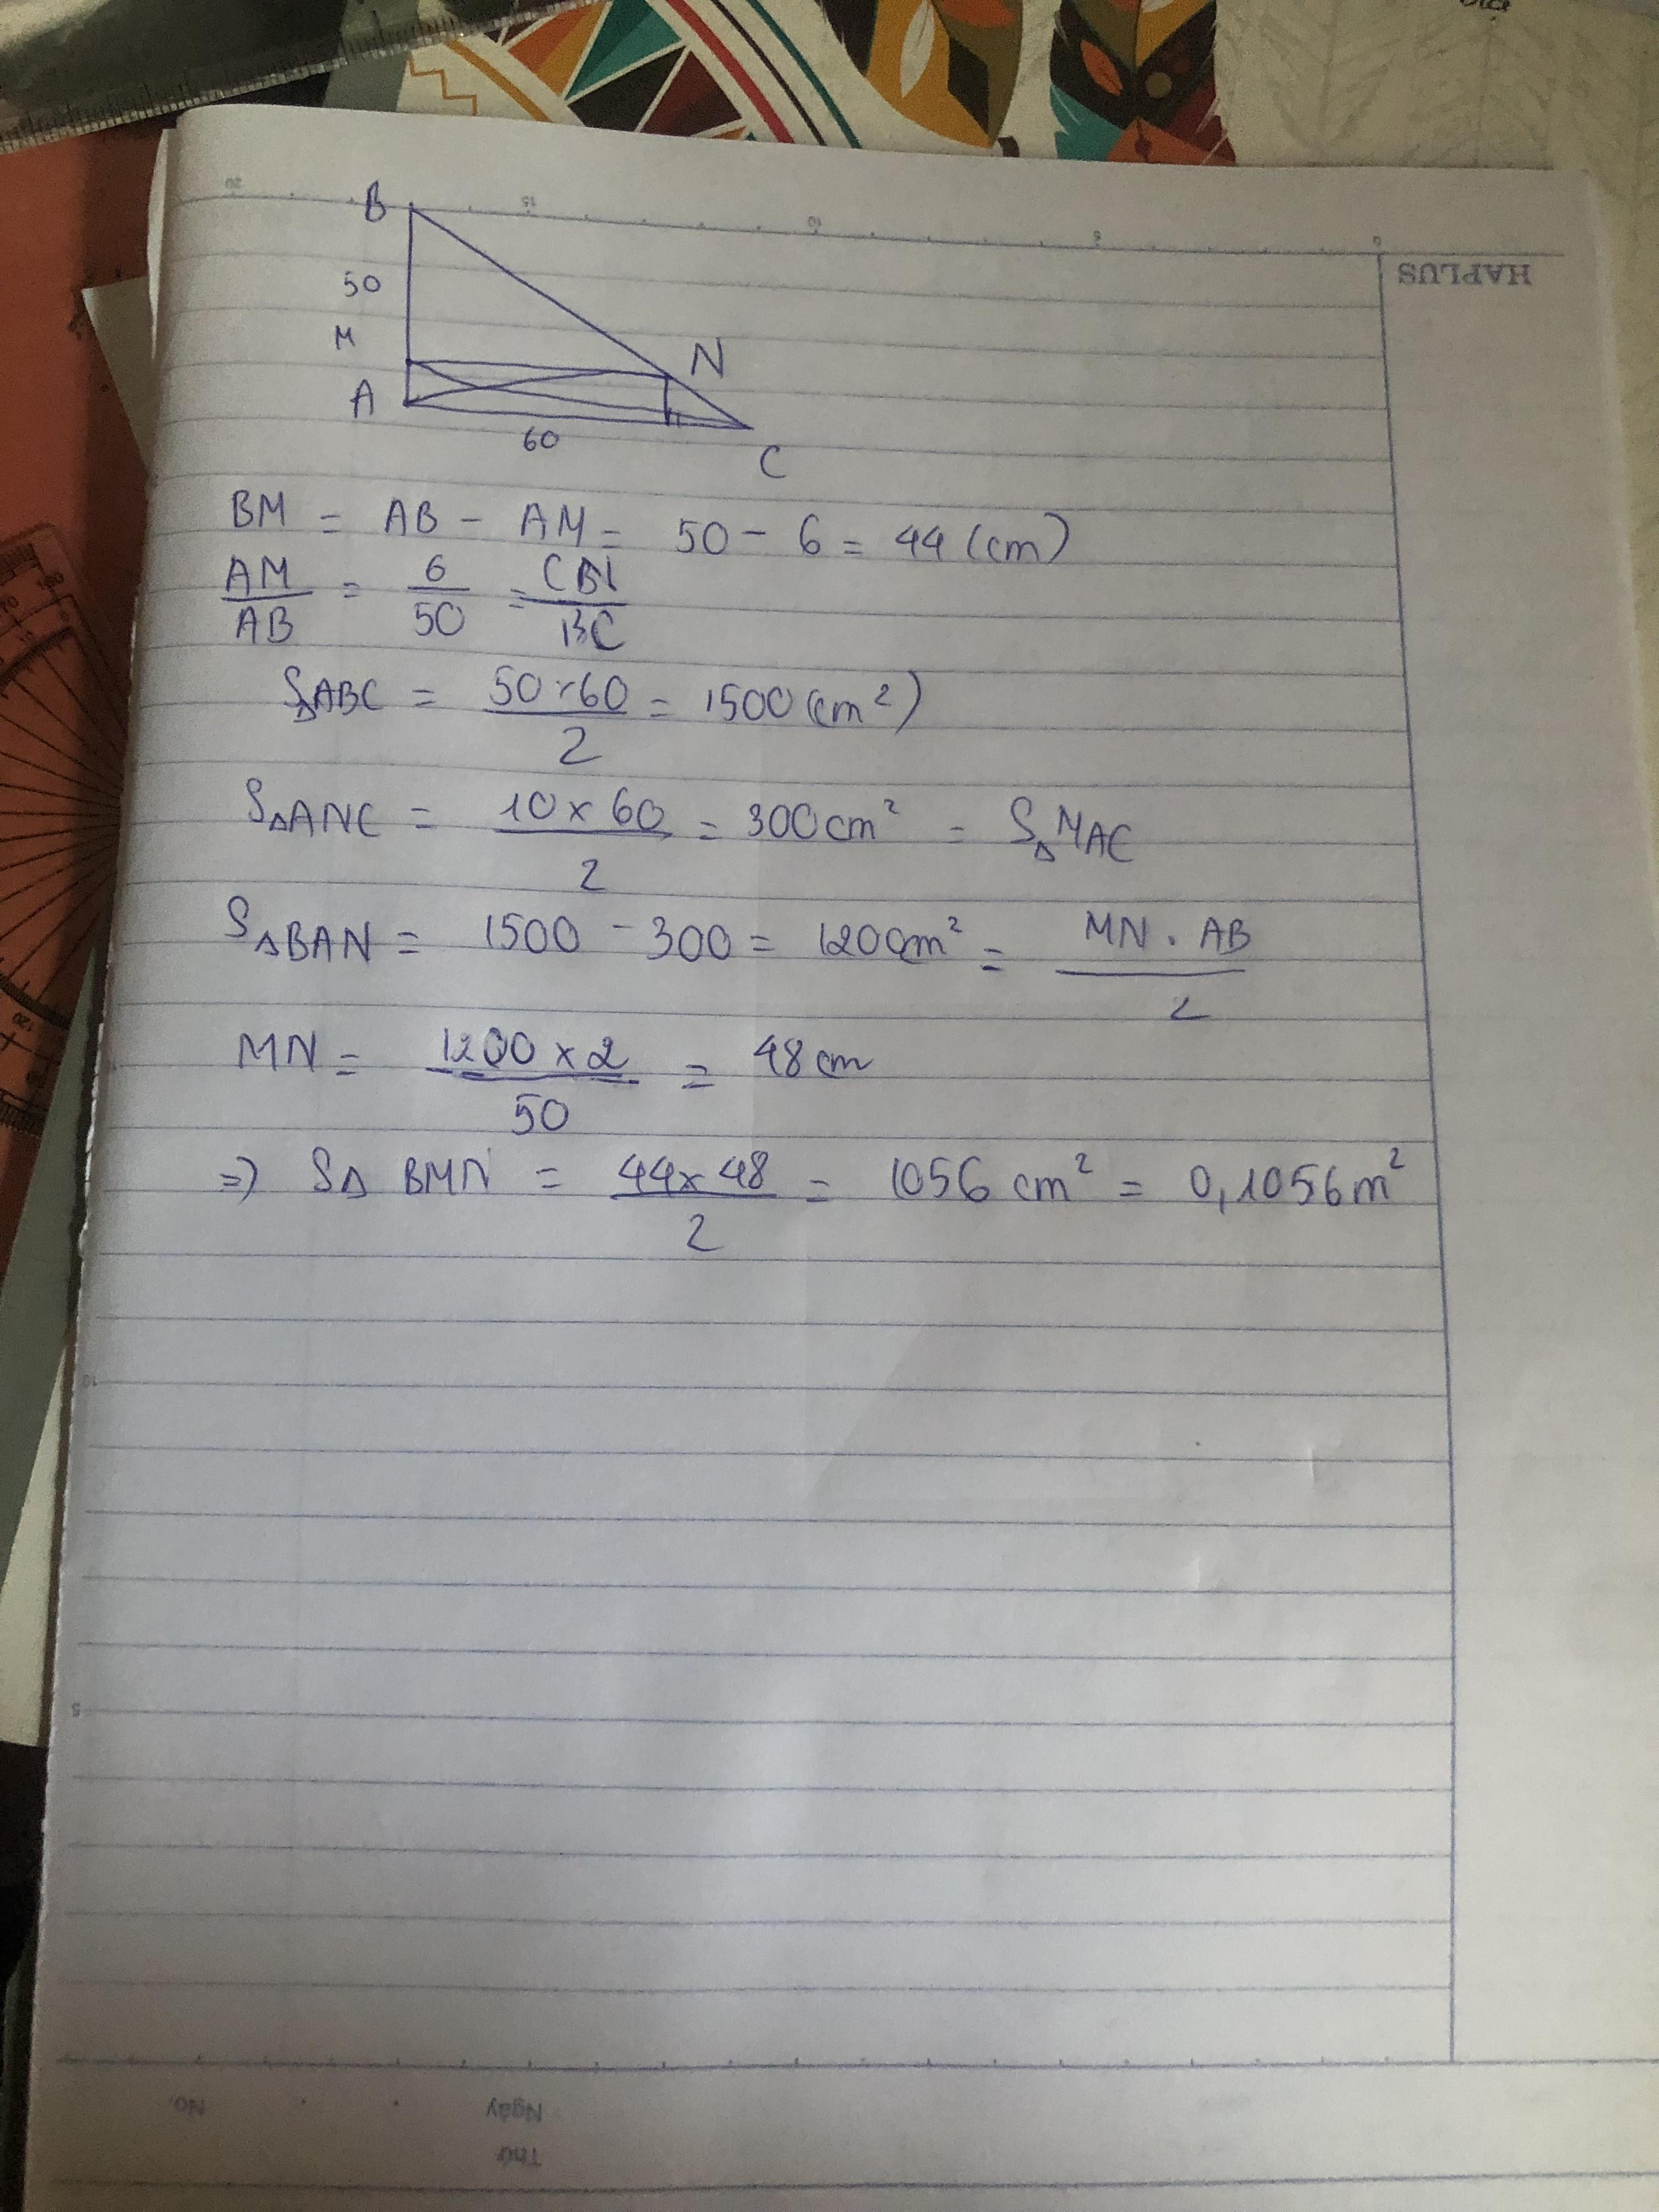 B
50
M
N
A
60
C
HAPLUS
20 15 10 5 0
BM = AB - AM = 50 - 6 = 44 (cm)
AM/AB = 6/50 = CBN/BC
S△ABC = 50×60/2 = 1500 (cm²)
S△ANC = 10 x 60/2 = 300 cm² = S△MAC
S△BAN = 1500 - 300 = 1200cm² = MN . AB/2
MN = 1200 x 2/50 = 48 cm
=> S△ BMN = 44 x 48/2 = 1056 cm² = 0,1056 m²
10
5
120
No.
Ngày
Thứ